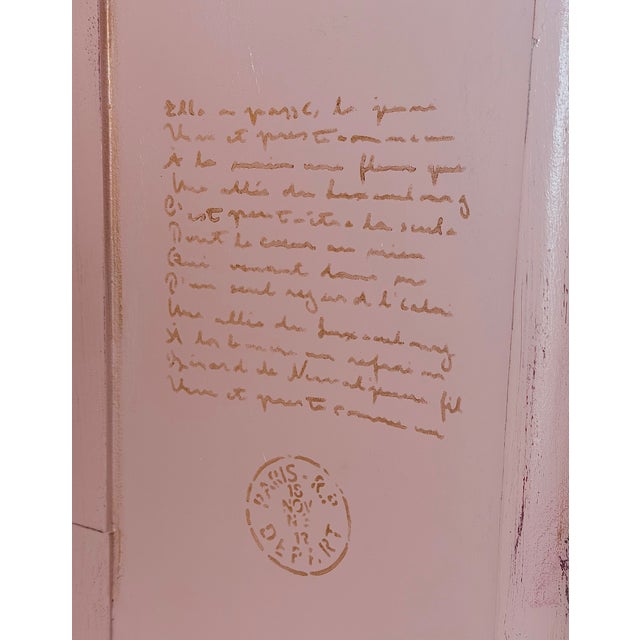 Elle a passé, la jeune
Vive et preste comme un
À la main une fleur que
Une allée du Luxembourg
C'est peut-être la seule
Dont le cœur au mien
Qui venant dans
D'un seul regard l'éclai
Une allée du Luxembourg
À la bouche un refrain
Gérard de Nerval jeune fil
Vive et preste comme un
PARIS. R.P
18
NOV
12
DEPART